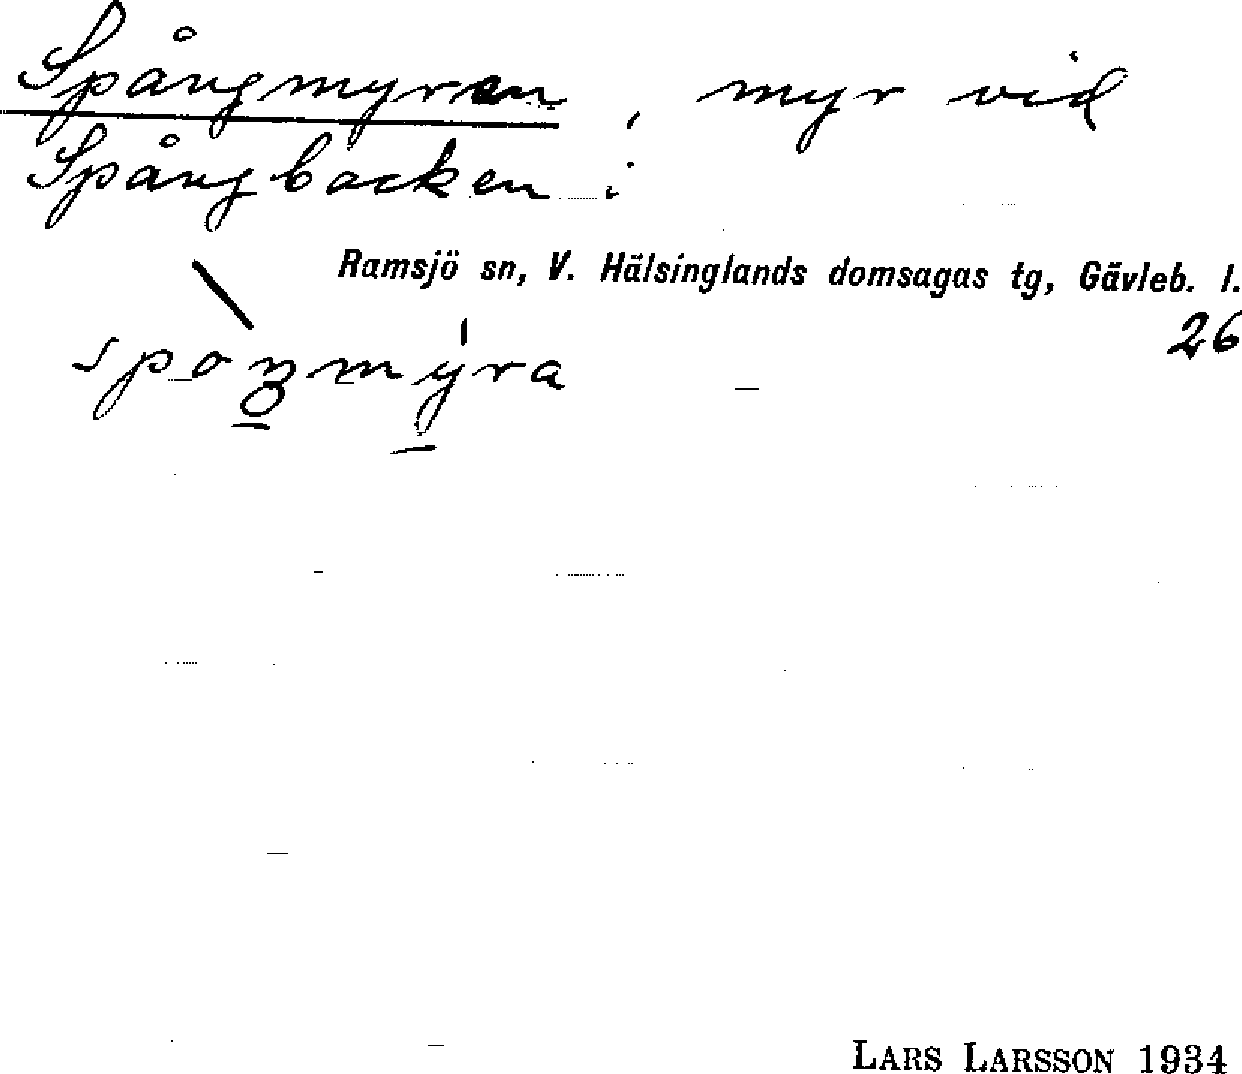 Spångmyren, myr vid
Spångbacken i
Ramsjö sn, V. Hälsinglands domsagas tg, Gävleb. l.
26
Lars Larsson 1934